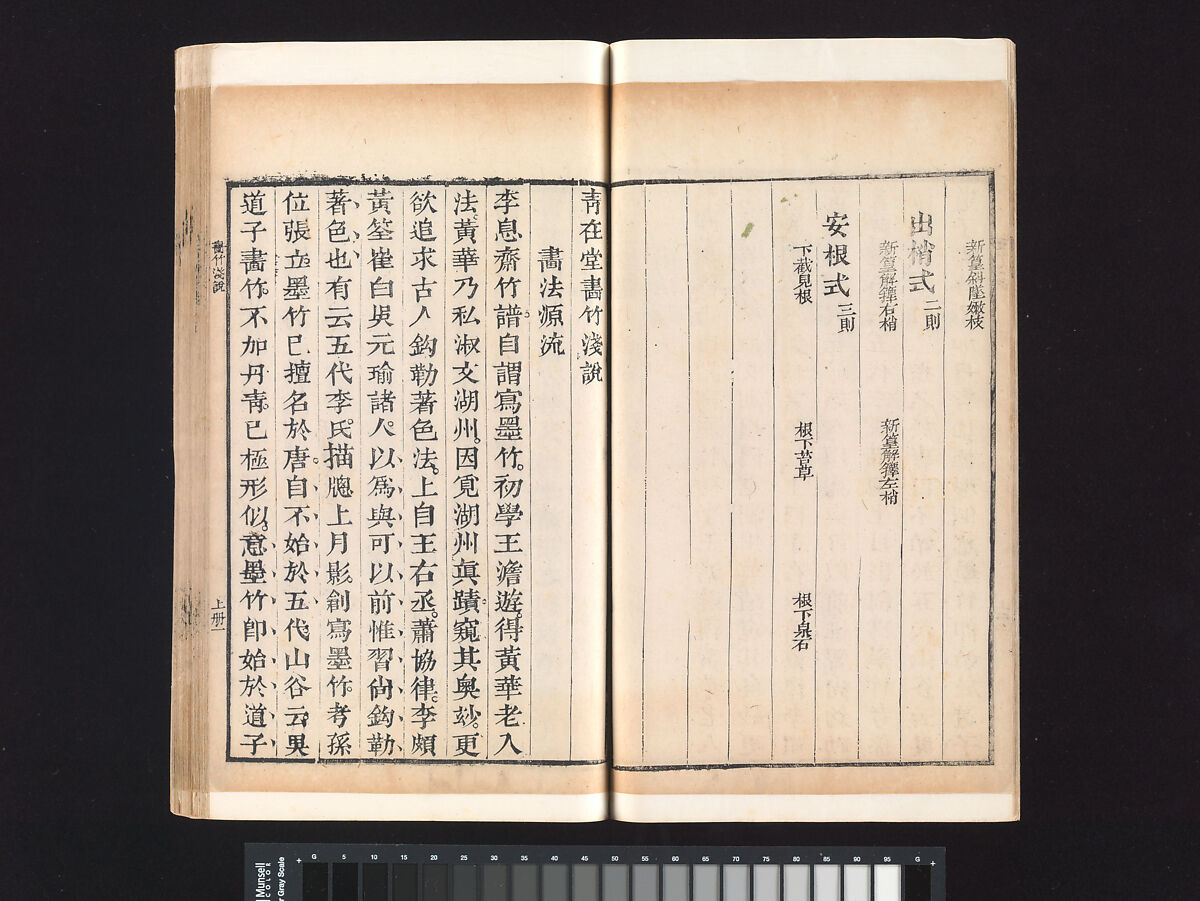 新篁斜墜嫩枝
出梢式 二則
新篁解籜右梢 新篁解籜左梢
安根式 三則
下截見根 根下苔草 根下泉石
青在堂畫竹淺說
畫法源流
李息齋竹譜自謂寫墨竹。初學王澹遊。得黃華老人
法。黃華乃私淑文湖州。因覓湖州真蹟。窺其奧妙。更
欲追求古人鈎勒著色法。上自王右丞。蕭協律。李頗
黃筌崔白吳元瑜諸人。以為與可以前惟習尚鈎勒
著色也。有云五代李氏描牕上月影。創寫墨竹。考孫
位張立墨竹已擅名於唐。自不始於五代。山谷云吳
道子畫竹。不加丹青。已極形似。意墨竹卽始於道子
畫竹淺說
上册 一
Munsell
COLOR
Gray Scale
G 5 10 15 20 25 30 35 40 45 50 55 60 65 70 75 80 85 90 95 G